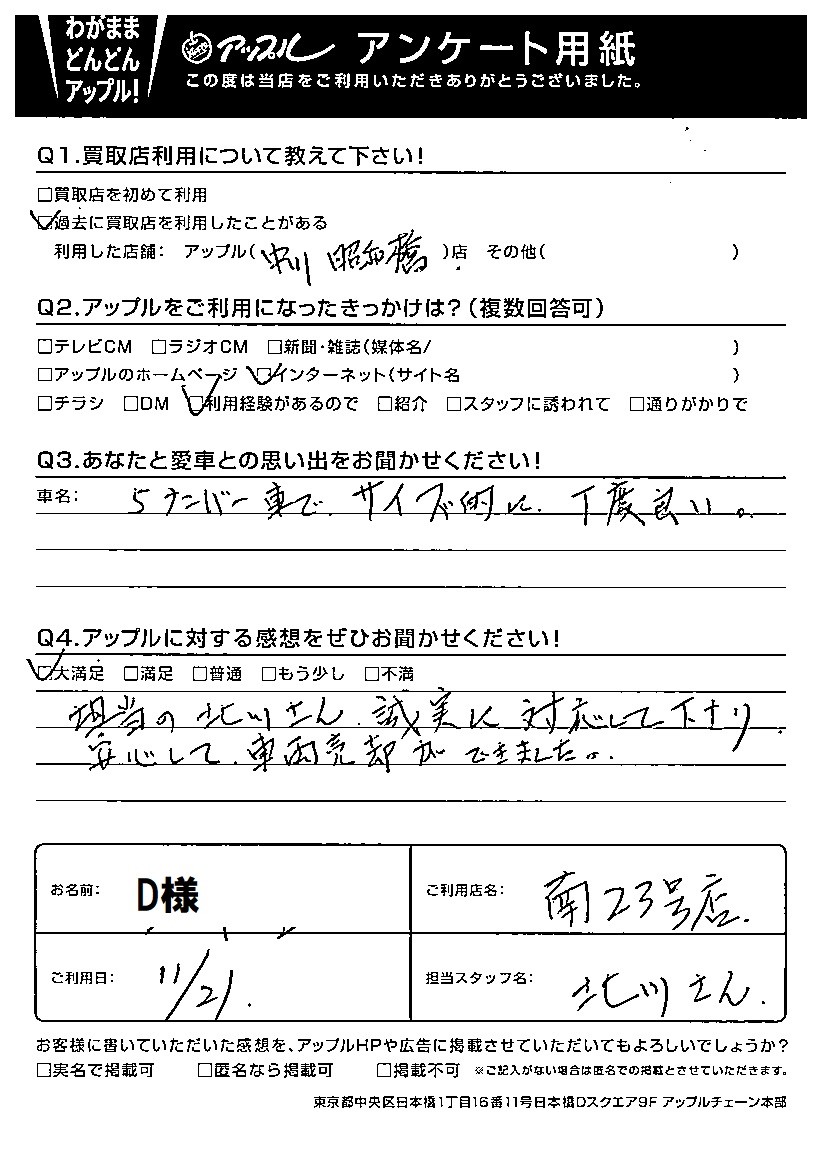 わがまま
どんどん
アップル!
アップル アンケート用紙
この度は当店をご利用いただきありがとうございました。
Q1.買取店利用について教えて下さい!
□買取店を初めて利用
☑過去に買取店を利用したことがある
利用した店舗: アップル(中川 昭和橋)店 その他( )
Q2.アップルをご利用になったきっかけは?(複数回答可)
□テレビCM □ラジオCM □新聞・雑誌(媒体名/ )
□アップルのホームページ ☑インターネット(サイト名 )
□チラシ □DM ☑利用経験があるので □紹介 □スタッフに誘われて □通りがかりで
Q3.あなたと愛車との思い出をお聞かせください!
車名: 5ナンバー車で、サイズ的に、丁度良い。
Q4.アップルに対する感想をぜひお聞かせください!
☑大満足 □満足 □普通 □もう少し □不満
担当の北川さん、誠実に対応して下さり、
安心して、車両売却ができました。
お名前: D様
ご利用店名: 南23号店.
ご利用日: 11/21.
担当スタッフ名: 北川さん.
お客様に書いていただいた感想を、アップルHPや広告に掲載させていただいてもよろしいでしょうか?
□実名で掲載可 □匿名なら掲載可 □掲載不可 ※ご記入がない場合は匿名での掲載とさせていただきます。
東京都中央区日本橋1丁目16番11号日本橋Dスクエア9F アップルチェーン本部